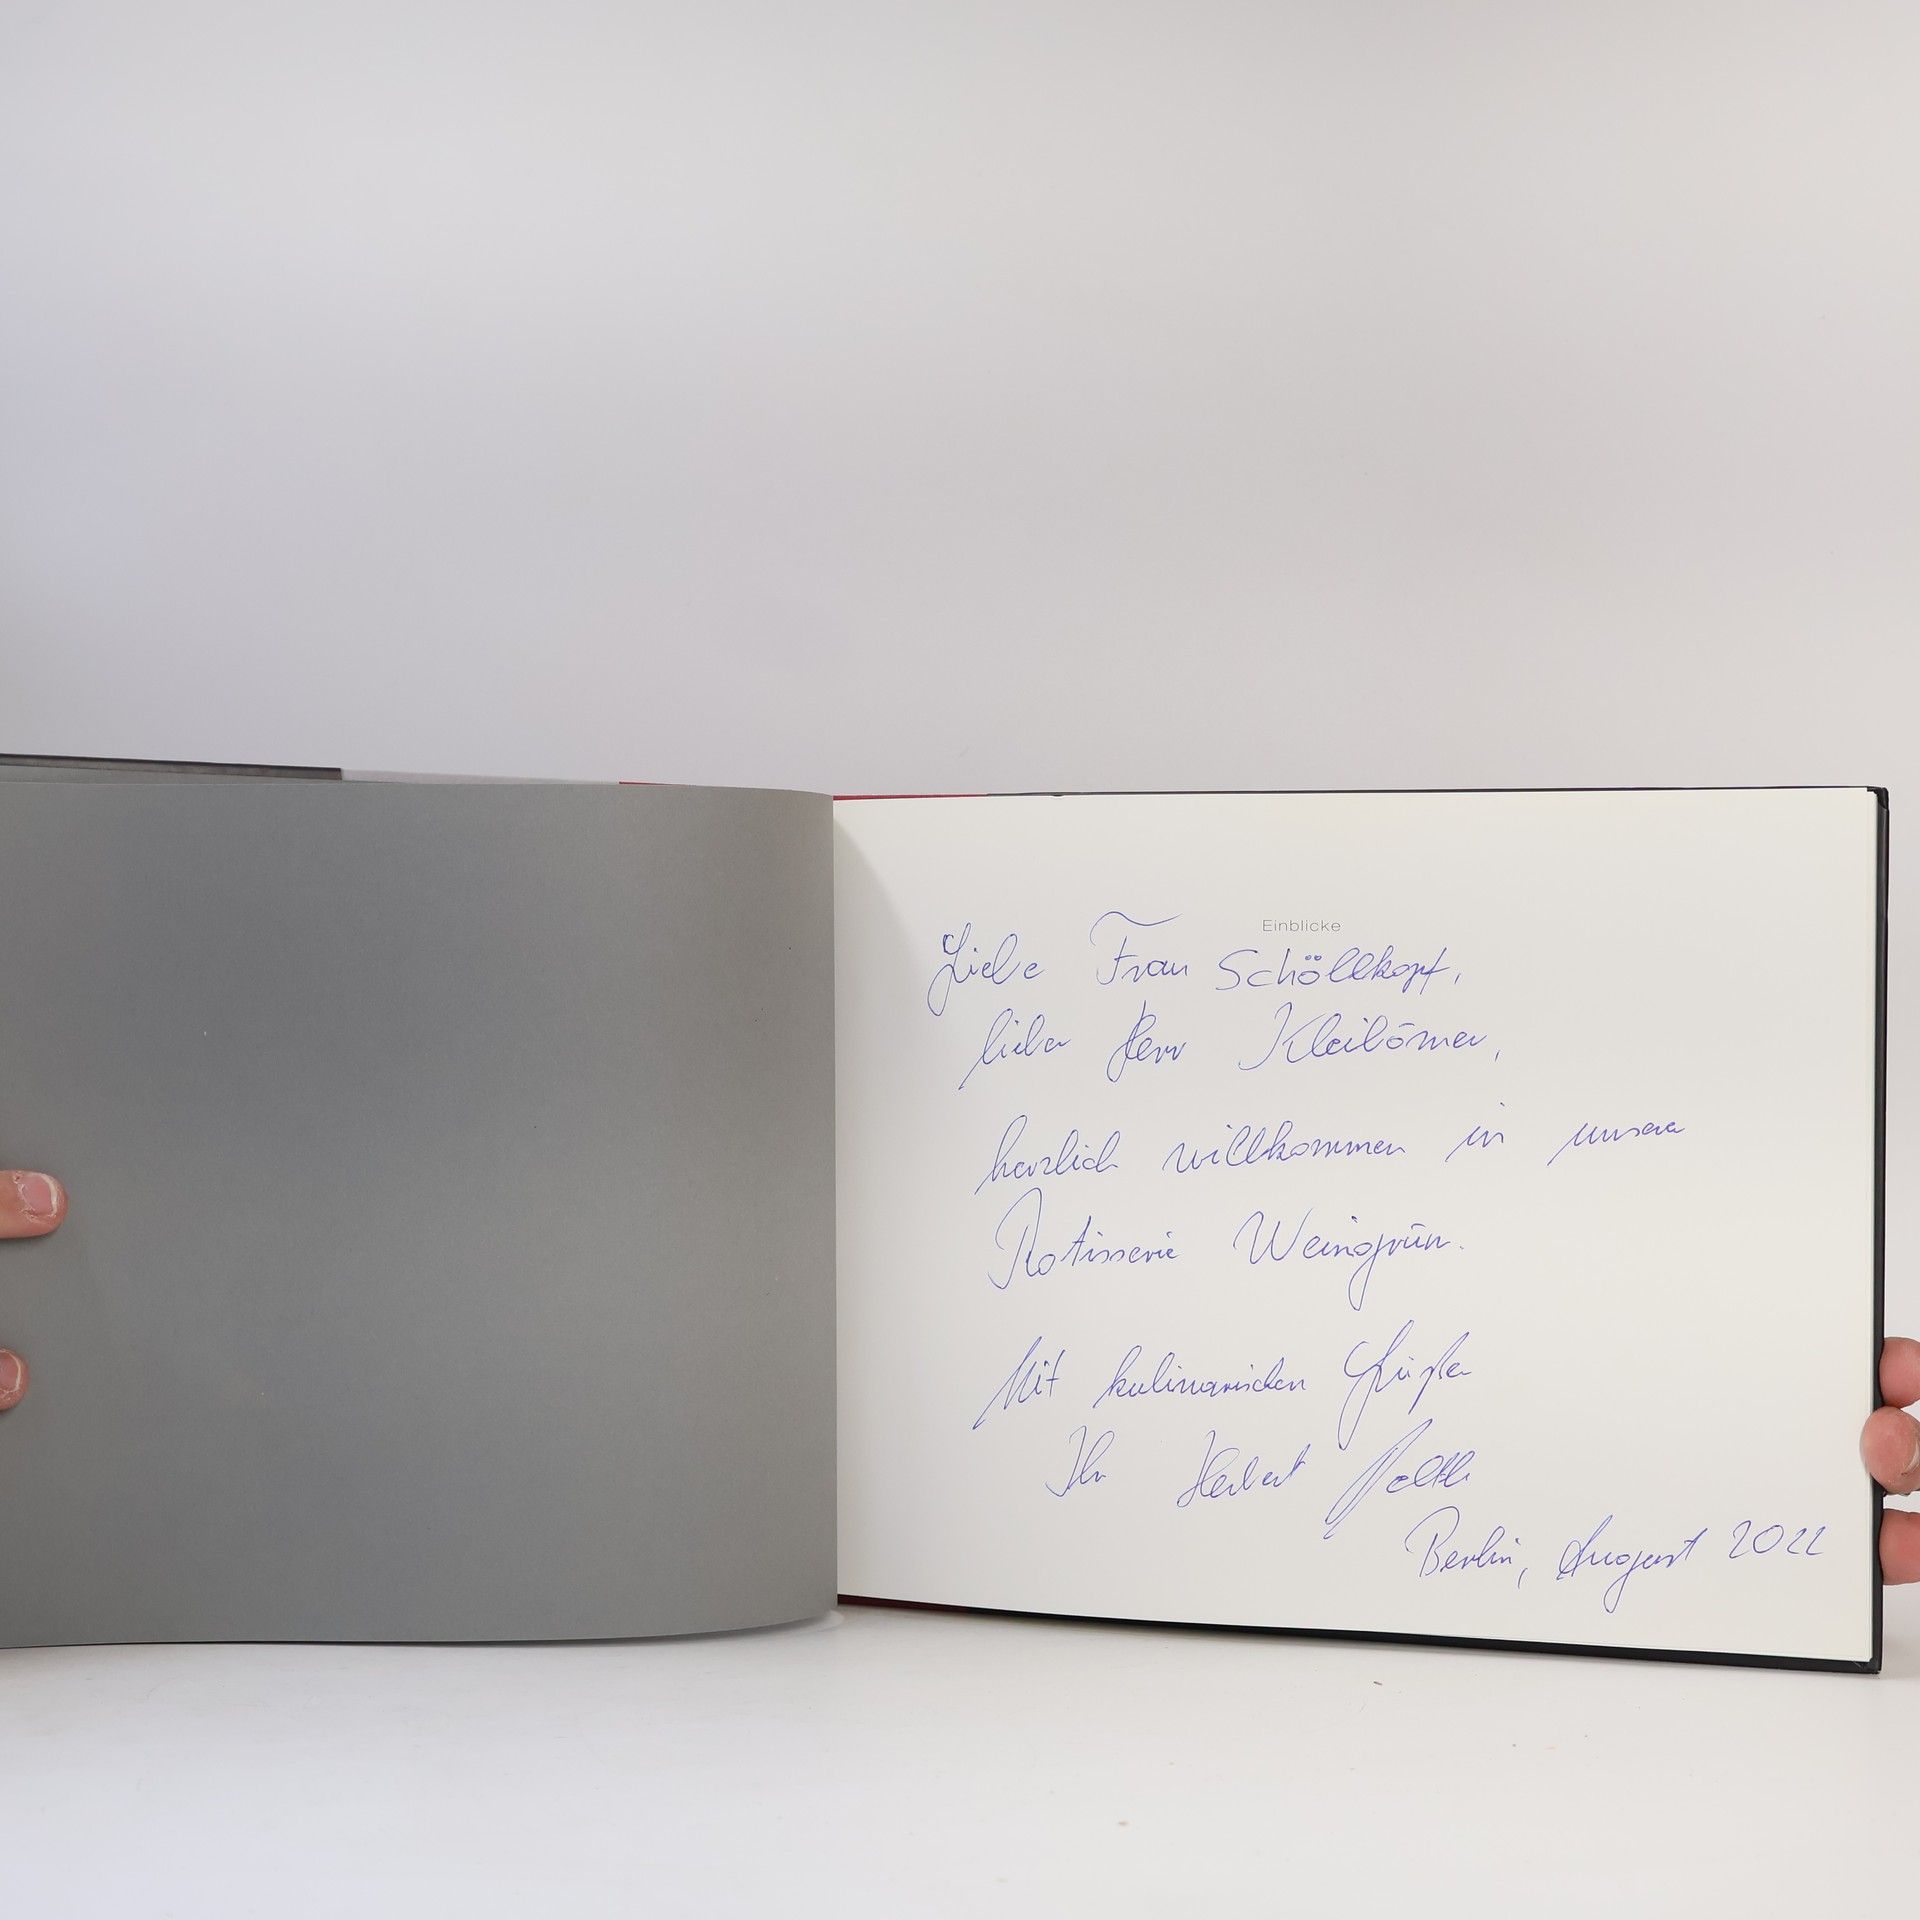 Einblicke
Liebe Frau Schöllkopf,
lieber Herr Kleibömer,
herzlich willkommen in unserer
Rotisserie Weingrün.
Mit kulinarischen Grüßen
Ihr Herbert
Berlin, August 2022